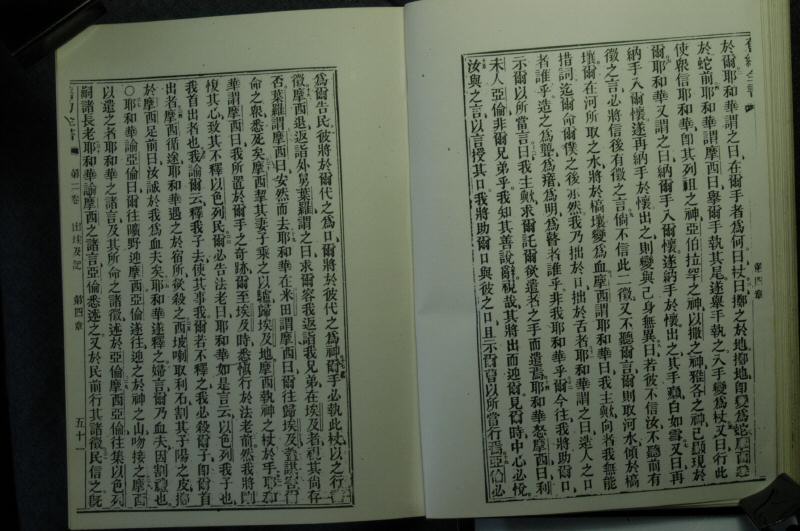 舊約全書
於爾耶和華謂之曰在爾手者爲何曰杖曰擲之於地擲地卽變爲蛇摩西
於蛇前耶和華謂摩西曰舉爾手執其尾遂舉手執之入手變爲杖又曰行此
使衆信耶和華卽其列祖之神亞伯拉罕之神以撒之神雅各之神已顯現於
爾耶和華又謂之曰納爾手入爾懷遂納手於懷出之其手癩白如雪又曰再
納手入爾懷遂再納手於懷出之則變與己身無異曰若彼不信汝不聽前有
徵之言必將信後有徵之言倘不信此二徵又不聽爾言爾則取河水傾於槁
壤爾在河所取之水將於槁壤變爲血摩西謂耶和華曰我主歟向者我無能
措詞迄爾命爾僕之後亦然我乃拙於口拙於舌者耶和華謂之曰造人之口
者誰乎造之爲聾爲瘖爲明爲瞽者誰乎非我耶和華乎爾今往我將助爾口
示爾以所當言曰我主歟求爾託爾欲遣者之手而遣焉耶和華怒摩西曰利
未人亞倫非爾兄弟乎我知其善說辭視哉其將出而迎爾見爾時中心必悅
汝與之言以言授其口我將助爾口與彼之口且示爾曹以所當行焉亞倫必
第四章
爲爾告民彼將於爾代之爲口爾將於彼代之爲神爾手必執此杖以之行
徵摩西退返詣外舅葉羅謂之曰求爾容我返詣我兄弟在埃及者視其尙存
否葉羅謂摩西曰安然而去耶和華在米田謂摩西曰爾往歸埃及蓋謀害
命之衆悉死矣摩西挈其妻子乘之以驢歸埃及地摩西執神之杖於手耶和
華謂摩西曰我所置於爾手之奇跡爾至埃及時悉愼行於法老前然我將剛
愎其心致其不釋民以色列民爾必告法老曰耶和華如是言云以色列我子也
我首出者也我諭爾云釋我子去使其事我爾若不釋之我必殺爾子卽爾首
出者摩西循途耶和華遇之於宿所欲殺之西坡喇取利石割其子陽之皮擲
於摩西足前曰汝誠於我爲血夫矣耶和華遂釋之婦言爾乃血夫因割禮也
○耶和華諭亞倫曰爾往曠野迎摩西亞倫遂往迎之於神之山吻接之摩西
以遣之者耶和華之諸言及其所命之諸徵述於亞倫摩西亞倫往集以色列
嗣諸長老耶和華諭摩西之諸言亞倫悉述之又於民前行其諸徵民信之旣
舊約全書 第二卷 出埃及記 第四章 五十一